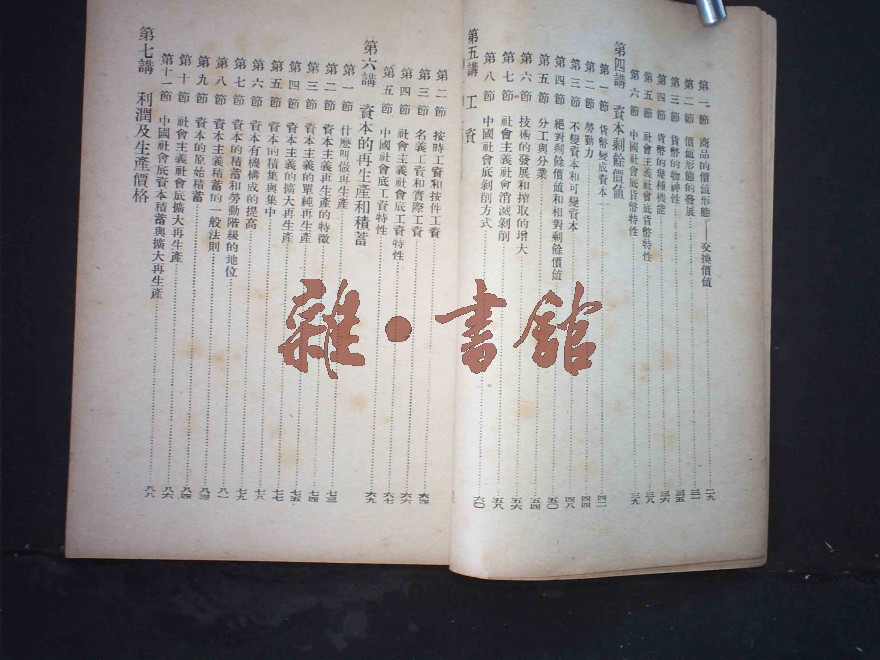 第一節　商品的價値形態——交換價値……二九
第二節　價値形態的發展……三一
第三節　貨幣的物神性……三五
第四節　貨幣的幾種機能……三六
第五節　社會主義社會底貨幣特性……三八
第六節　中國社會底貨幣特性……三九
第四講　資本剩餘價値
第一節　貨幣變成資本……四二
第二節　勞動力……四四
第三節　不變資本和可變資本……四八
第四節　絕對剩餘價値和相對剩餘價値……五〇
第五節　分工與分業……五四
第六節　技術的發展和搾取的增大……五六
第七節　社會主義社會消滅剝削……五八
第八節　中國社會底剝削方式……六〇
第五講　工資
第二節　按時工資和按件工資
第三節　名義工資和實際工資……六四
第四節　社會主義社會底工資特性……六六
第五節　中國社會底工資特性……六七
第六講　資本的再生產和積蓄……六九
第一節　什麼叫做再生產
第二節　資本主義再生產的特徵……七三
第三節　資本主義的單純再生產……七四
第四節　資本主義的擴大再生產……七五
第五節　資本的積集與集中……七七
第六節　資本有機構成的提高……七八
第七節　資本的積蓄和勞動階級的地位……七九
第八節　資本主義積蓄的一般法則……八一
第九節　資本的原始積蓄……八三
第十節　社會主義社會底擴大再生產……八四
第十一節　中國社會底資本積蓄與擴大再生產……八六
第七講　利潤及生產價格……八八
雜·書館